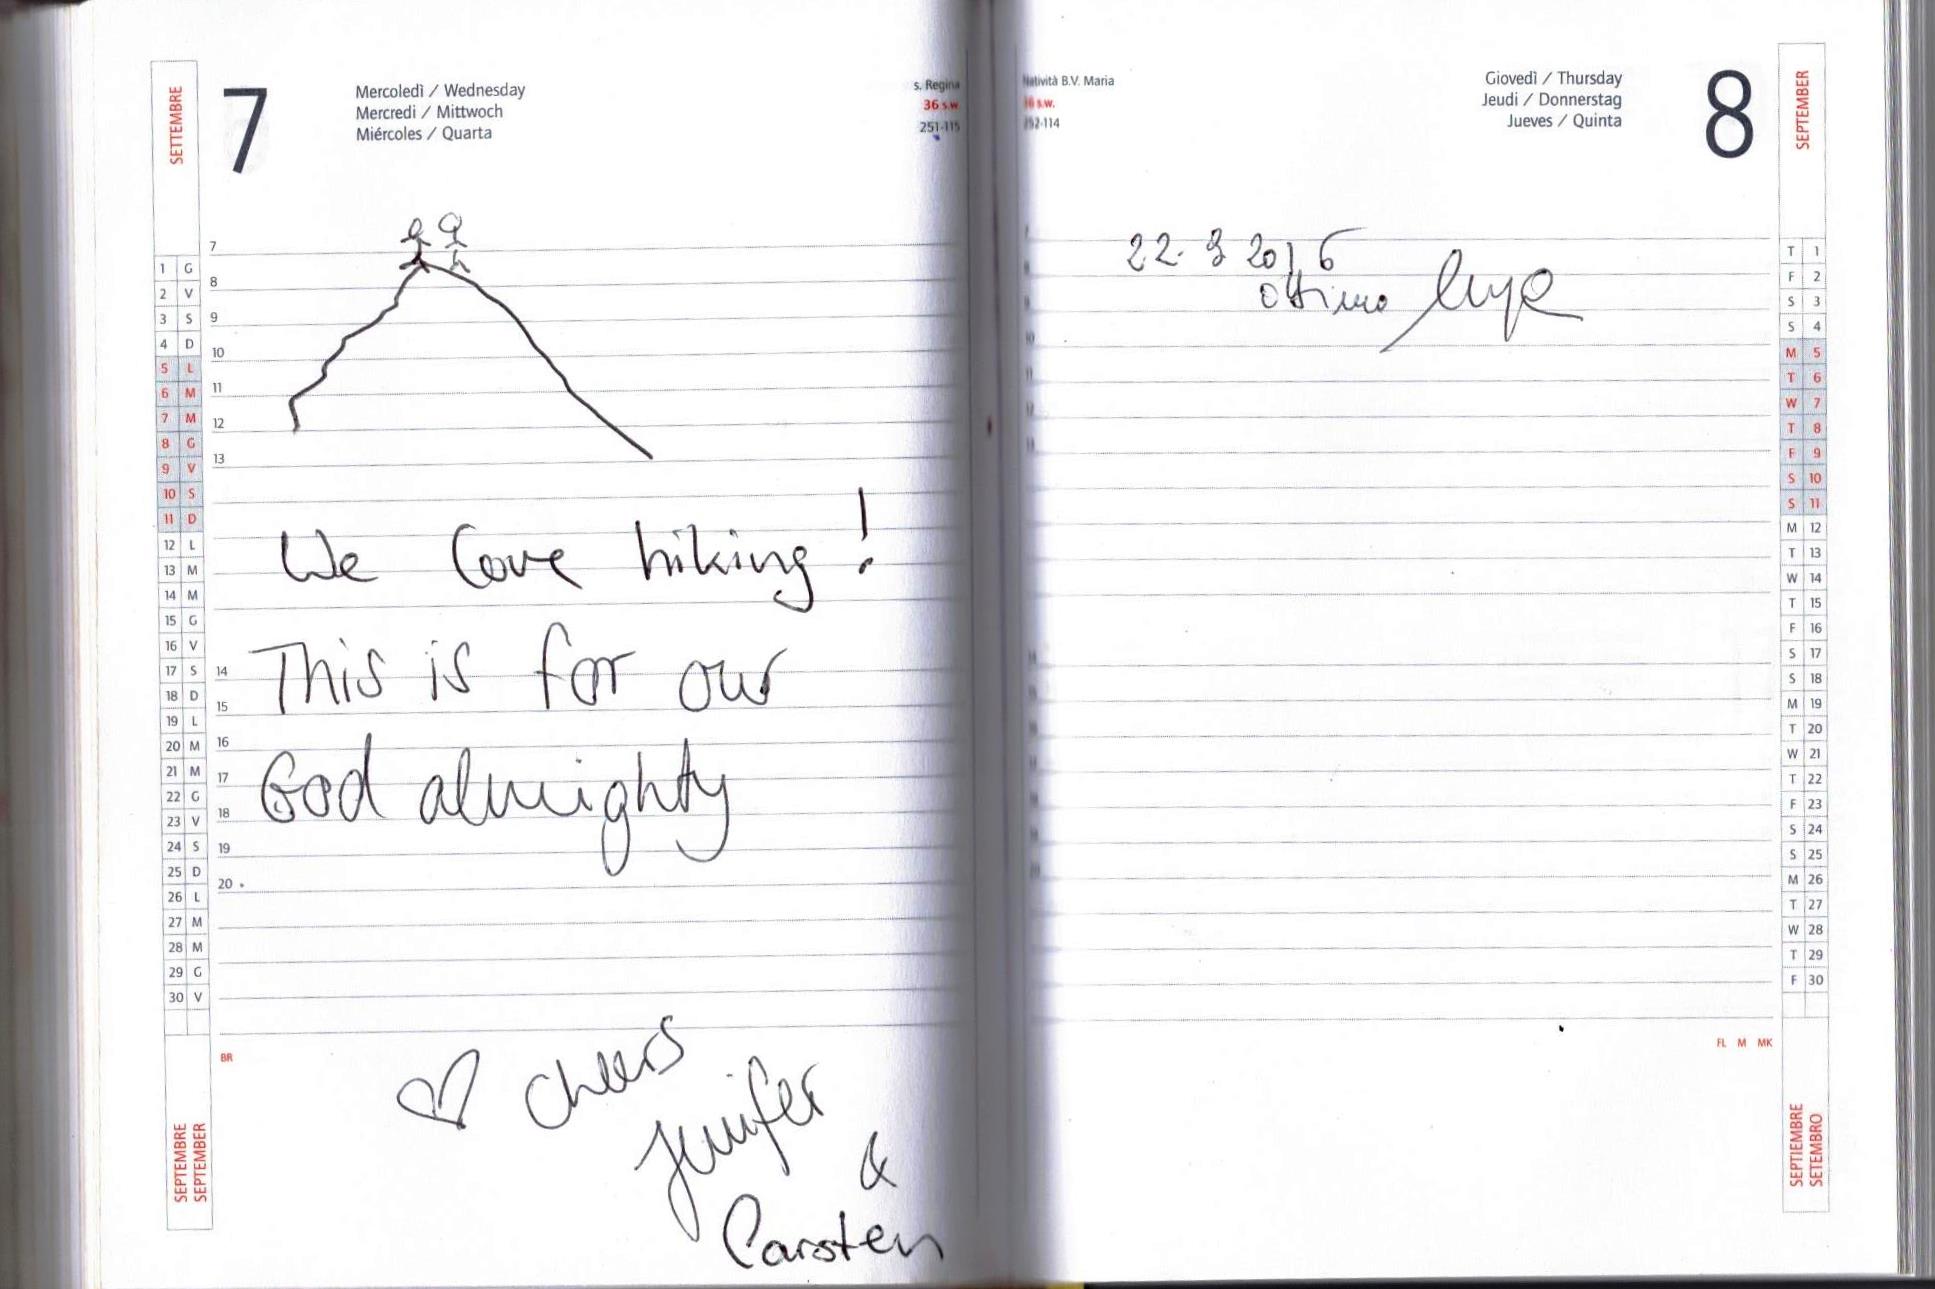 SETTEMBRE
7
Mercoledì / Wednesday
Mercredi / Mittwoch
Miércoles / Quarta
s. Regina
36 s.w.
251-115
7
8
9
10
11
12
13
We love hiking!
This is for our
God almighty
14
15
16
17
18
19
20
1 G
2 V
3 S
4 D
5 L
6 M
7 M
8 G
9 V
10 S
11 D
12 L
13 M
14 M
15 G
16 V
17 S
18 D
19 L
20 M
21 M
22 G
23 V
24 S
25 D
26 L
27 M
28 M
29 G
30 V
BR
SEPTEMBRE
SEPTEMBER
cheers
Jennifer
&
Carsten
Natività B.V. Maria
36 s.w.
252-114
Giovedì / Thursday
Jeudi / Donnerstag
Jueves / Quinta
8
SEPTEMBER
22. 9 2016
ottimo
T 1
F 2
S 3
S 4
M 5
T 6
W 7
T 8
F 9
S 10
S 11
M 12
T 13
W 14
T 15
F 16
S 17
S 18
M 19
T 20
W 21
T 22
F 23
S 24
S 25
M 26
T 27
W 28
T 29
F 30
FL M MK
SEPTIEMBRE
SETEMBRO